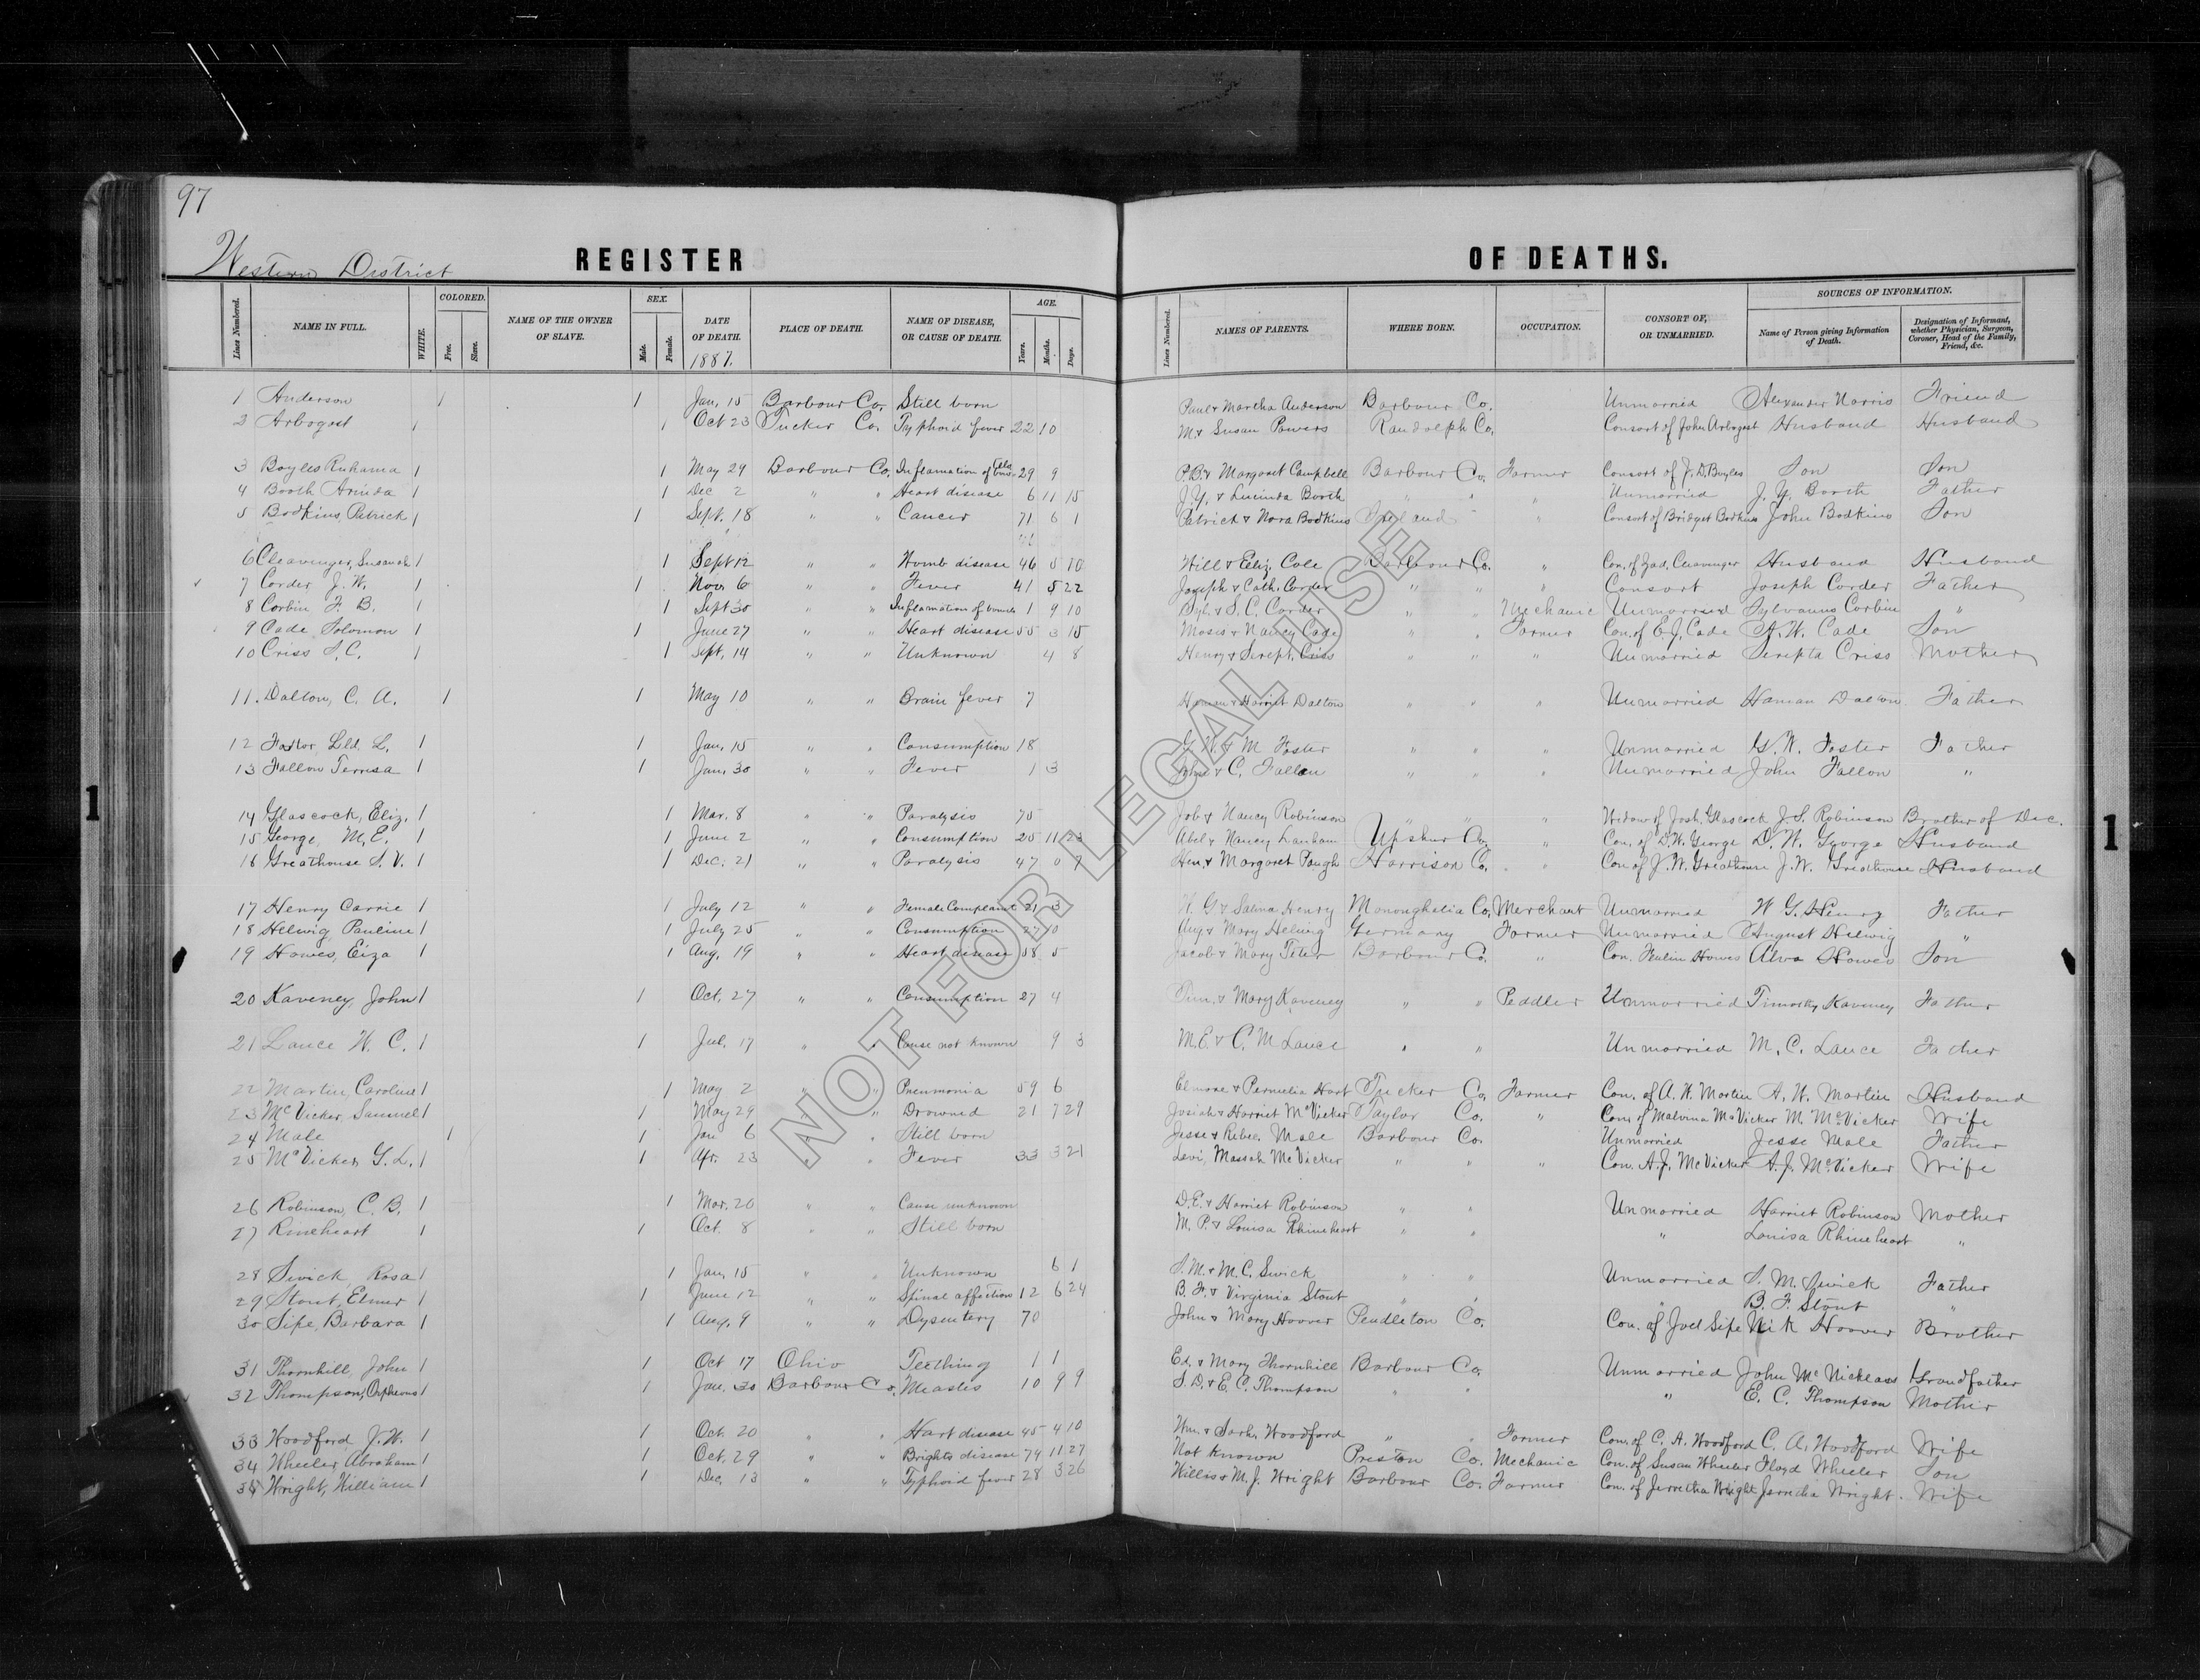 97
Western District
REGISTER OF DEATHS.
Lines Numbered. NAME IN FULL. WHITE. COLORED. Free. Slave. NAME OF THE OWNER OF SLAVE. SEX. Male. Female. DATE OF DEATH. 1887. PLACE OF DEATH. NAME OF DISEASE, OR CAUSE OF DEATH. AGE. Years. Months. Days. Lines Numbered. NAMES OF PARENTS. WHERE BORN. OCCUPATION. CONSORT OF, OR UNMARRIED. SOURCES OF INFORMATION. Name of Person giving Information of Death. Designation of Informant, whether Physician, Surgeon, Coroner, Head of the Family, Friend, &c.
1 Anderson 1 1 Jan. 15 Barbour Co. Still born Paul & Martha Anderson Barbour Co. Unmarried Alexander Norris Friend
2 Arbogast 1 1 Oct 23 Tucker Co. Typhoid fever 22 10 M & Susan Powers Randolph Co. Consort of John Arbogast Husband Husband
3 Boyles Ruhama 1 1 May 24 Barbour Co. Inflamation of 29 9 P.B. & Margaret Campbell Barbour Co. Farmer Consort of J. D. Boyles Son Son
4 Booth Arinda 1 1 Dec 2 " " Heart disease 6 11 15 J. Y. & Lucinda Booth " " " Unmarried J. Y. Booth Father
5 Bodkins, Patrick 1 1 Sept. 18 " " Cancer 71 6 1 Patrick & Nora Bodkins Ireland " " Consort of Bridget Bodkins John Bodkins Son
6 Cleavinger, Susanah 1 1 Sept 12 " " Womb disease 46 5 10 Will & Eliz. Cole Barbour Co. " Con. of Zad. Cleavinger Husband Husband
7 Corder J. W. 1 1 Nov. 6 " " Fever 41 5 22 Joseph & Cath. Corder " " " Consort Joseph Corder Father
8 Corbin F. B. 1 1 Sept 30 " " Inflamation of bowels 1 9 10 Syl. & S. C. Corder " " Mechanic Unmarried Sylvanus Corbin "
9 Cade Solomon 1 1 June 27 " " Heart disease 55 3 15 Moses & Nancy Cade " " Farmer Con. of E. J. Cade A. W. Cade Son
10 Criss S. C. 1 1 Sept. 14 " " Unknown 4 8 Henry & Serept. Criss " " " Unmarried Serepta Criss Mother
11. Dalton, C. A. 1 1 May 10 " " Brain fever 7 Haman & Harriet Dalton " " " Unmarried Haman Dalton Father
12 Foster, Lld. L. 1 1 Jan. 15 " " Consumption 18 G. W. & M Foster " " " Unmarried G. W. Foster Father
13 Fallon Terresa 1 1 Jan. 30 " " Fever 1 3 John & C. Fallon " " " Unmarried John Fallon "
14 Glascock, Eliz. 1 1 Mar. 8 " " Paralysis 75 Job & Nancy Robinson " " " Widow of Josh. Glascock J. S. Robinson Brother of Dec.
15 George, M. E. 1 1 June 2 " " Consumption 25 11 23 Abel & Nancy Lanham Upshur Co. " Con. of D. W. George D. W. George Husband
16 Greathouse S. V. 1 1 Dec. 21 " " Paralysis 47 0 7 Hen. & Margaret Paugh Harrison Co. " Con. of J. W. Greathouse J. W. Greathouse Husband
17 Henry Carrie 1 1 July 12 " " Female Complaint 21 3 W. G & Salina Henry Mononghelia Co. Merchant Unmarried W. G. Henry Father
18 Helwig Pauline 1 1 July 25 " " Consumption 27 10 Aug & Mary Helwig Germany Farmer Unmarried August Helwig "
19 Howes, Eiza 1 1 Aug. 19 " " Heart disease 58 5 Jacob & Mary Teter Barbour Co. " Con. Howes Alva Howes Son
20 Kaveney, John 1 1 Oct. 27 " " Consumption 27 4 Tim. & Mary Kaveney " " Peddler Unmarried Timothy Kaveney Father
21 Lance W. C. 1 1 Jul. 17 " " Cause not known 9 3 M. E. & C. M Lance " " Unmarried M. C. Lance Father
22 Martin, Caroline 1 1 May 2 " " Pneumonia 59 6 Elmore & Permelia Hart Tucker Co. Farmer Con. of A. W. Martin A. W. Martin Husband
23 McVicker, Samuel 1 1 May 29 " " Drowned 21 7 29 Josiah & Harriet McVicker Taylor Co. " Con. of Malvina McVicker M. McVicker Wife
24 Male 1 1 Jan 6 " " Still born Jesse & Rebec. Male Barbour Co. Unmarried Jesse Male Father
25 McVicker, G. L. 1 1 Apr. 23 " " Fever 33 3 21 Levi, Massah McVicker " " " Con. A. J. McVicker A. J. McVicker Wife
26 Robinson, C. B. 1 1 Mar. 20 " " Cause unknown D. E. & Harriet Robinson " " Unmarried Harriet Robinson Mother
27 Rineheart 1 1 Oct. 8 " " Still born M. P. & Louisa Rhineheart " " " Louisa Rhineheart "
28 Swick, Rosa 1 1 Jan. 15 " " Unknown 6 1 S. M. & M. C. Swick " " Unmarried S. M. Swick Father
29 Stout, Elmer 1 1 June 12 " " Spinal affection 12 6 24 B. F. & Virginia Stout " " " B. F. Stout "
30 Sipe, Barbara 1 1 Aug. 9 " " Dysentery 70 John & Mary Hoover Pendleton Co. Con. of Joel Sipe Nik Hoover Brother
31 Thornhill, John 1 1 Oct 17 Ohio Teething 1 1 Ed. & Mary Thornhill Barbour Co. Unmarried John McNicklass Grandfather
32 Thompson, Orpheous 1 1 Jan. 30 Barbour Co. Measles 10 9 9 S. D. & E. C. Thompson " " " E. C. Thompson Mother
33 Woodford, J. W. 1 1 Oct. 20 " " Hart disease 45 4 10 Wm. & Sarh. Woodford " " Farmer Con. of C. A. Woodford C. A. Woodford Wife
34 Wheeler Abraham 1 1 Oct. 29 " " Brights disease 74 11 27 Not known Preston Co. Mechanic Con. of Susan Wheeler Floyd Wheeler Son
35 Wright, William 1 1 Dec. 13 " " Typhoid fever 28 3 26 Willis & M. J. Wright Barbour Co. Farmer Con. of Jerretha Wright Jerretha Wright. Wife
1
1
NOT FOR LEGAL USE